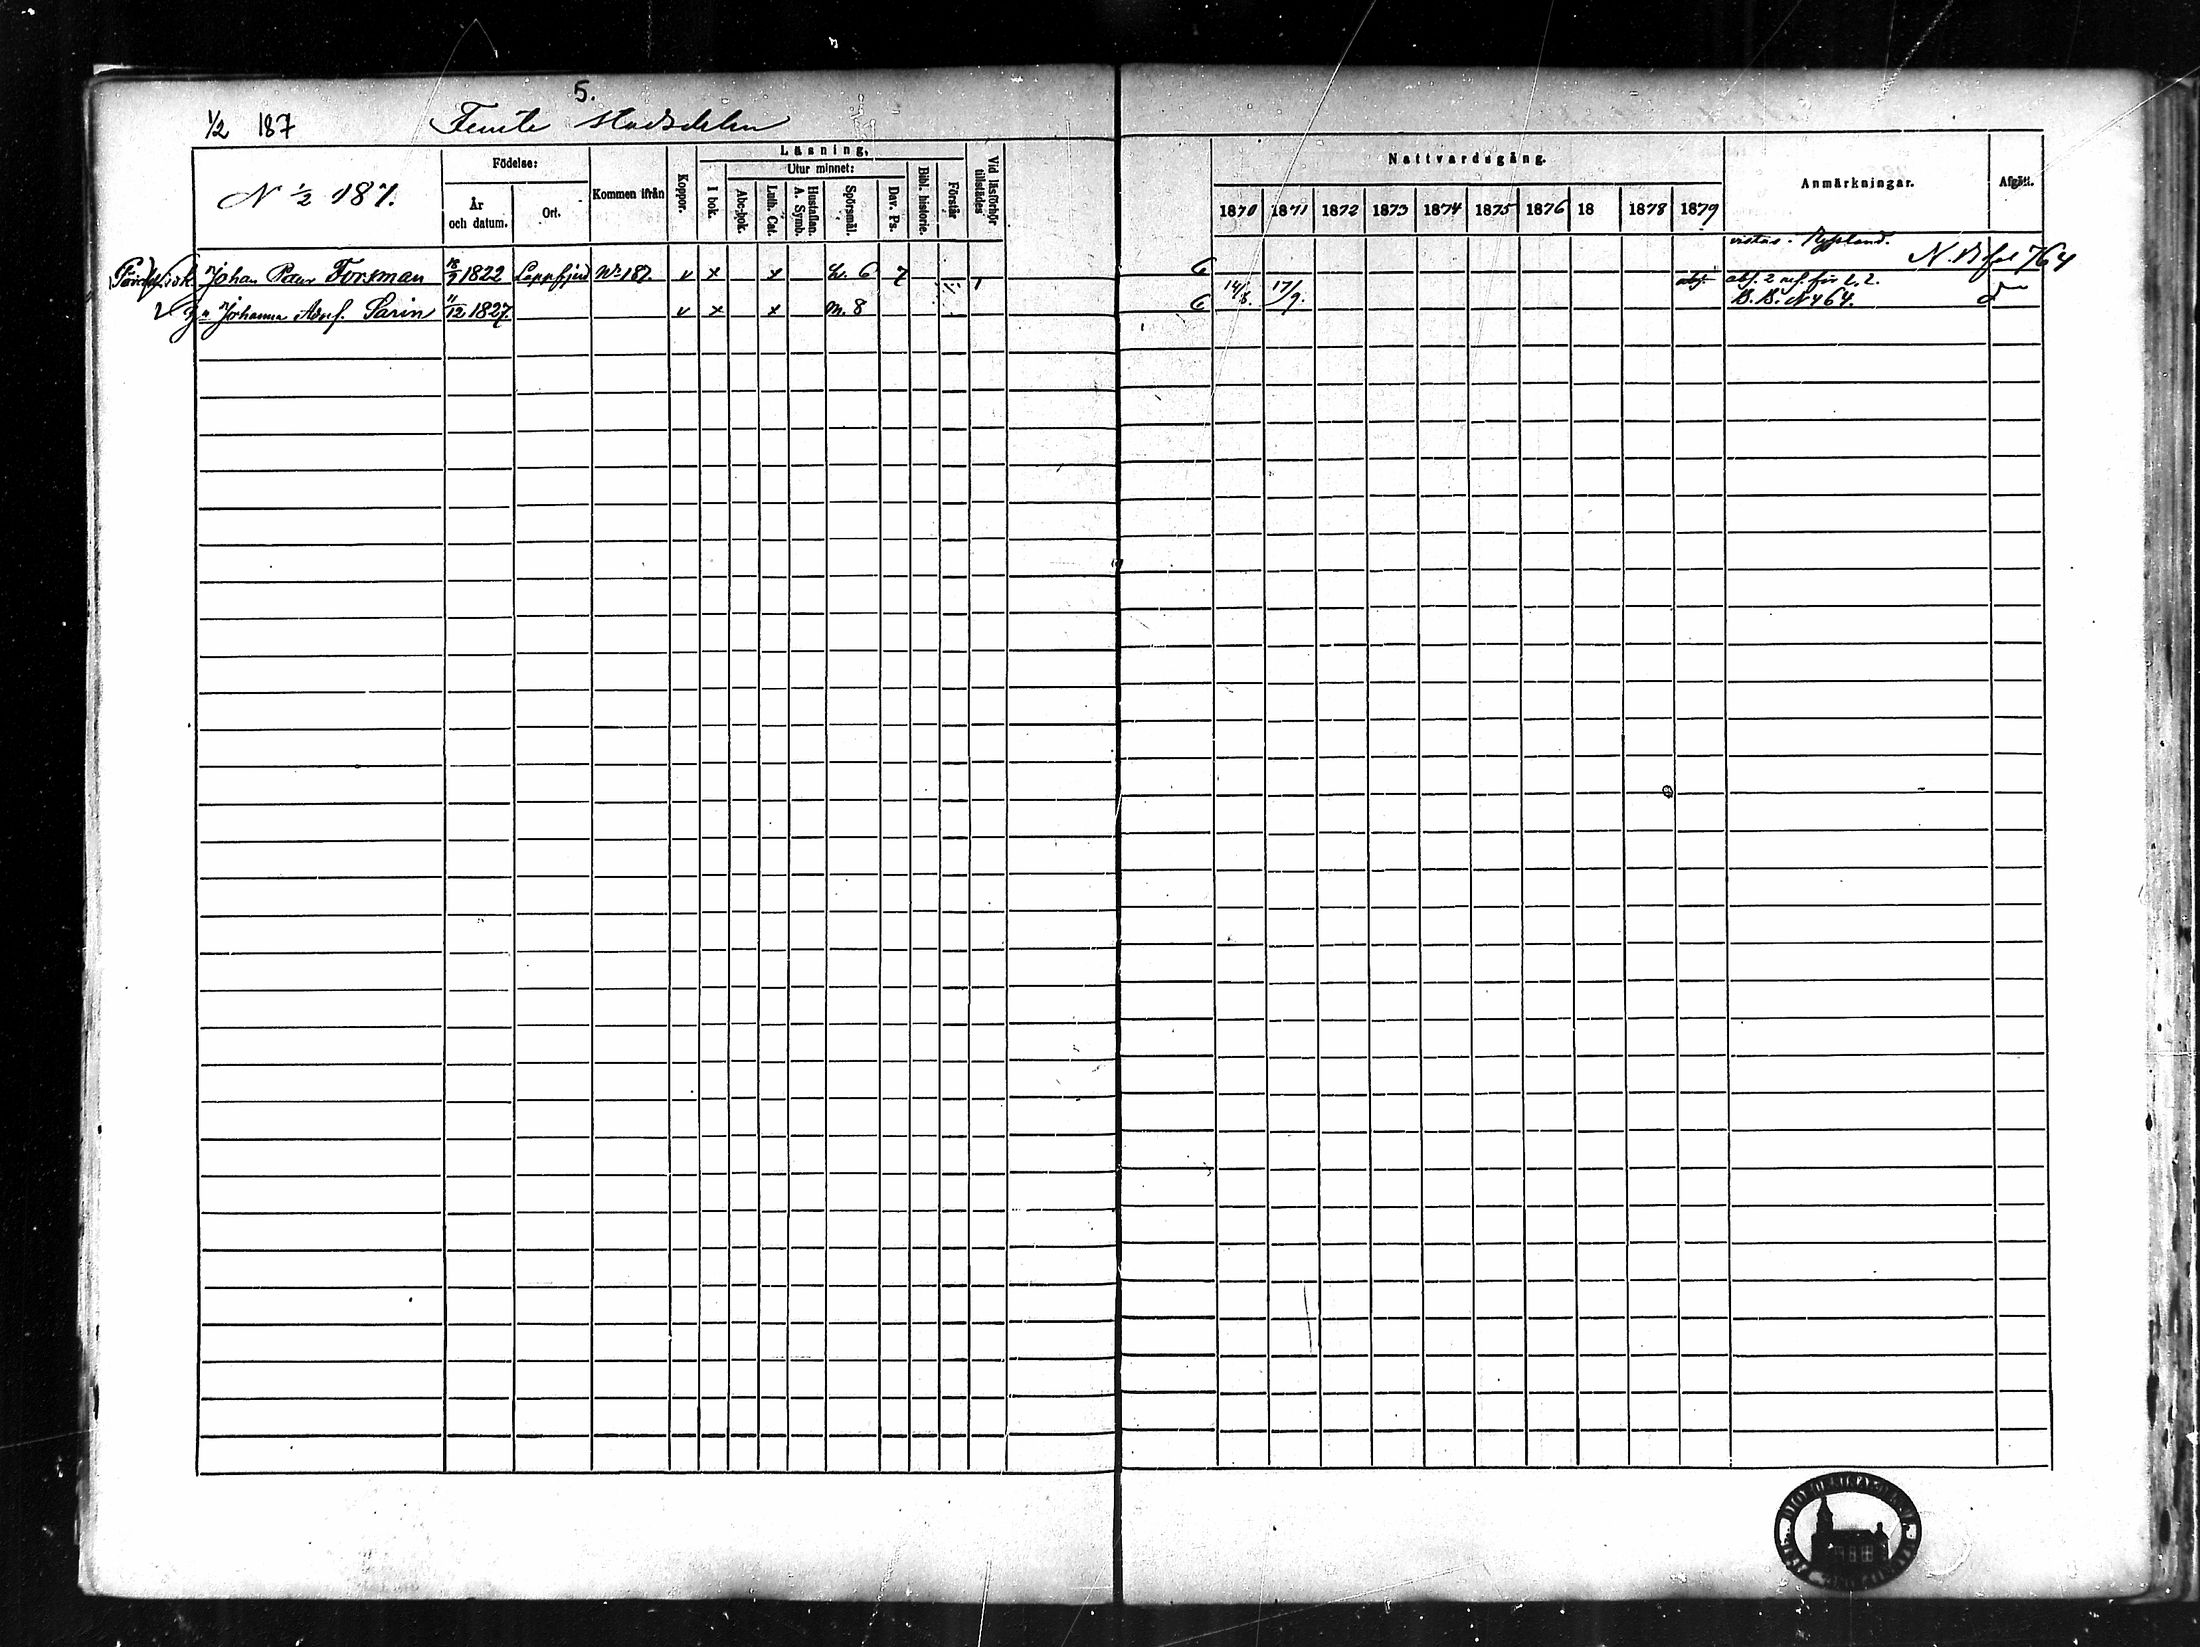 5.
1/2 187 Femte Stadsdelen
N 1/2 187.
Födelse:
År och datum.
Ort.
Kommen ifrån
Koppor.
Läsning.
I bok.
Utur minnet:
Abc-bok.
Luth. Cat.
Hustaflan. A. Symb.
Spörsmål.
Dav. Ps.
Bibl. historie.
Förstår
Vid läsförhör tillstädes
Nattvardsgång.
1870 1871 1872 1873 1874 1875 1876 18 1878 1879
Anmärkningar.
Afgått.
vistas. Ryssland.
Johan Peter Forsman 18/9 1822 Lappfjerd No 187. v x x Sv. 6 7 6 N.B. fol 764
2 Johanna Adosf. Sarin 11/12 1827. v x x m. 8 6 14/8. 17/9. abs. abs. 2 nf. för l. 2.
B. B. N 464.